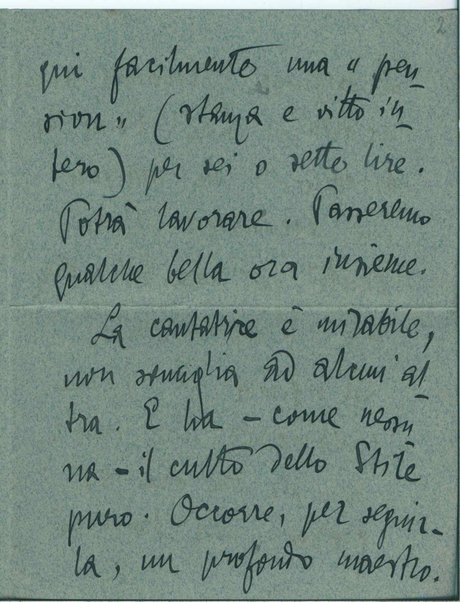 2
qui facilmente una « pen
sion » (stanza e vitto in
tero) per sei o sette lire.
Potrà lavorare. Passeremo
qualche bella ora insieme.
La cantatrice è mirabile,
non somiglia ad alcun'al
tra. E ha – come nessu
na – il culto dello Stile
puro. Occorre, per seguir-
la, un profondo maestro.